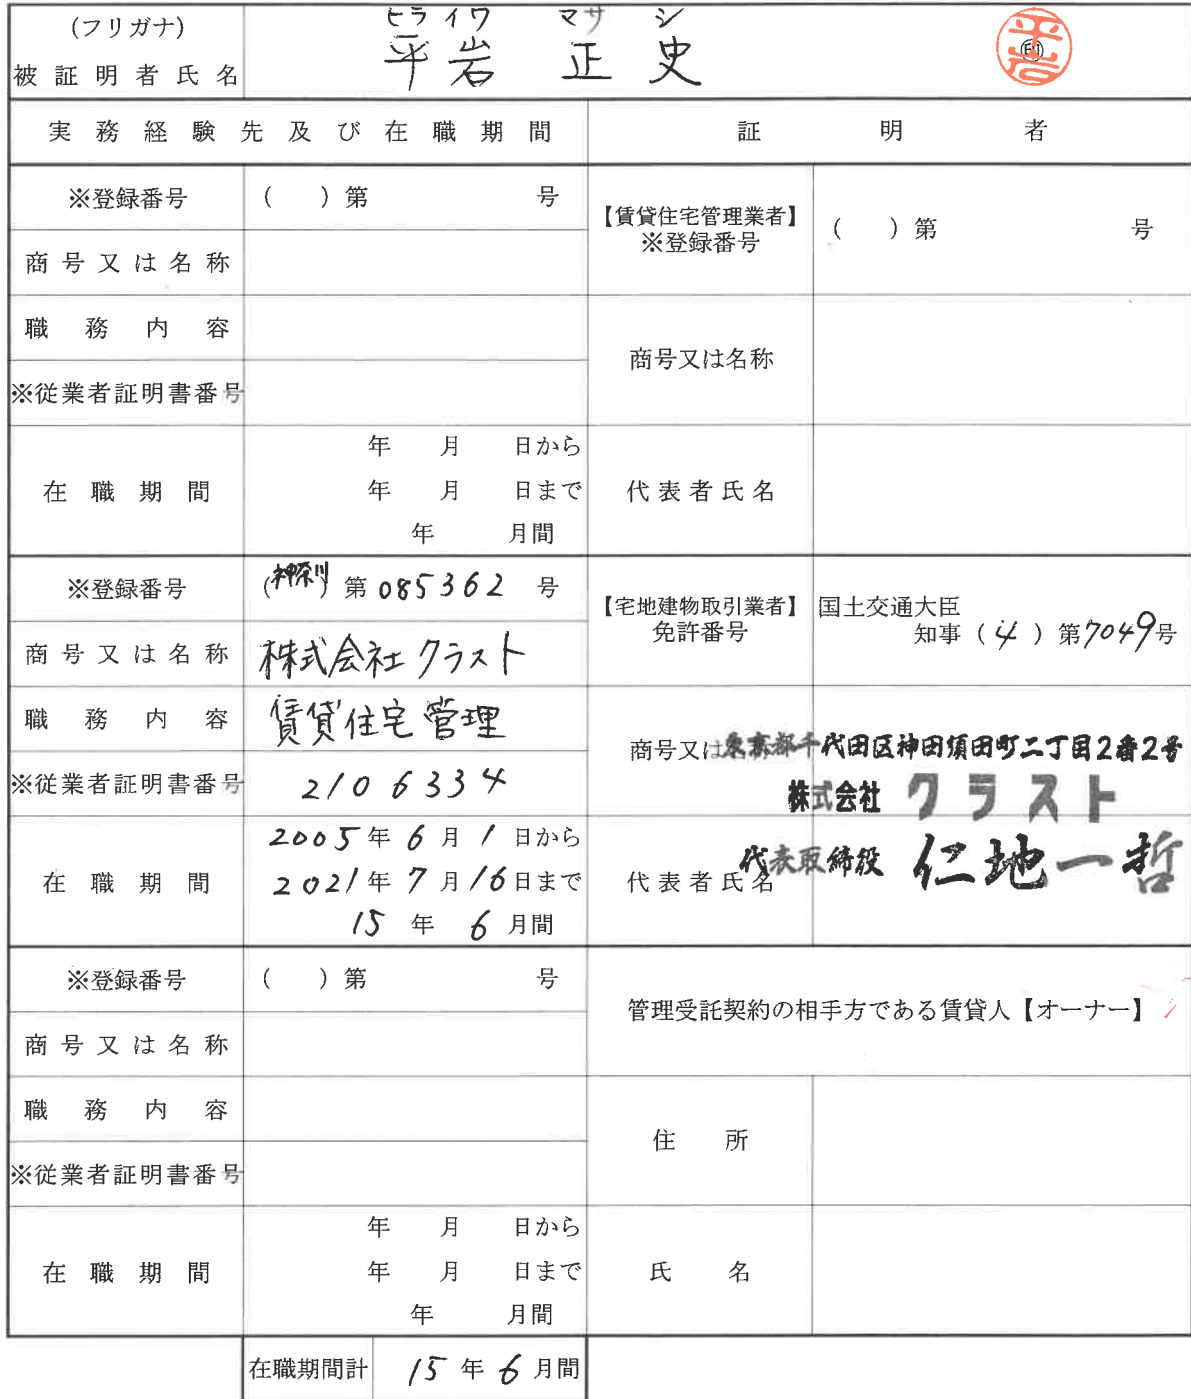 (フリガナ) ヒライワ マサシ
被証明者氏名 平岩 正史 ㊞ 平岩
実務経験先及び在職期間 証明者
※登録番号 ( ) 第 号
商号又は名称
職務内容
※従業者証明書番号
在職期間 年 月 日から
年 月 日まで
年 月間
【賃貸住宅管理業者】
※登録番号 ( ) 第 号
商号又は名称
代表者氏名
※登録番号 (神奈川) 第 085362 号
商号又は名称 株式会社クラスト
職務内容 賃貸住宅管理
※従業者証明書番号 2106334
在職期間 2005年 6月 1日から
2021年 7月 16日まで
15年 6月間
【宅地建物取引業者】 国土交通大臣
免許番号 知事 (4) 第7049号
商号又は
東京都千代田区神田須田町二丁目2番2号
株式会社 クラスト
代表取締役 仁地一哲
代表者氏名
※登録番号 ( ) 第 号
商号又は名称
職務内容
※従業者証明書番号
在職期間 年 月 日から
年 月 日まで
年 月間
管理受託契約の相手方である賃貸人【オーナー】
住所
氏名
在職期間計 15年 6月間